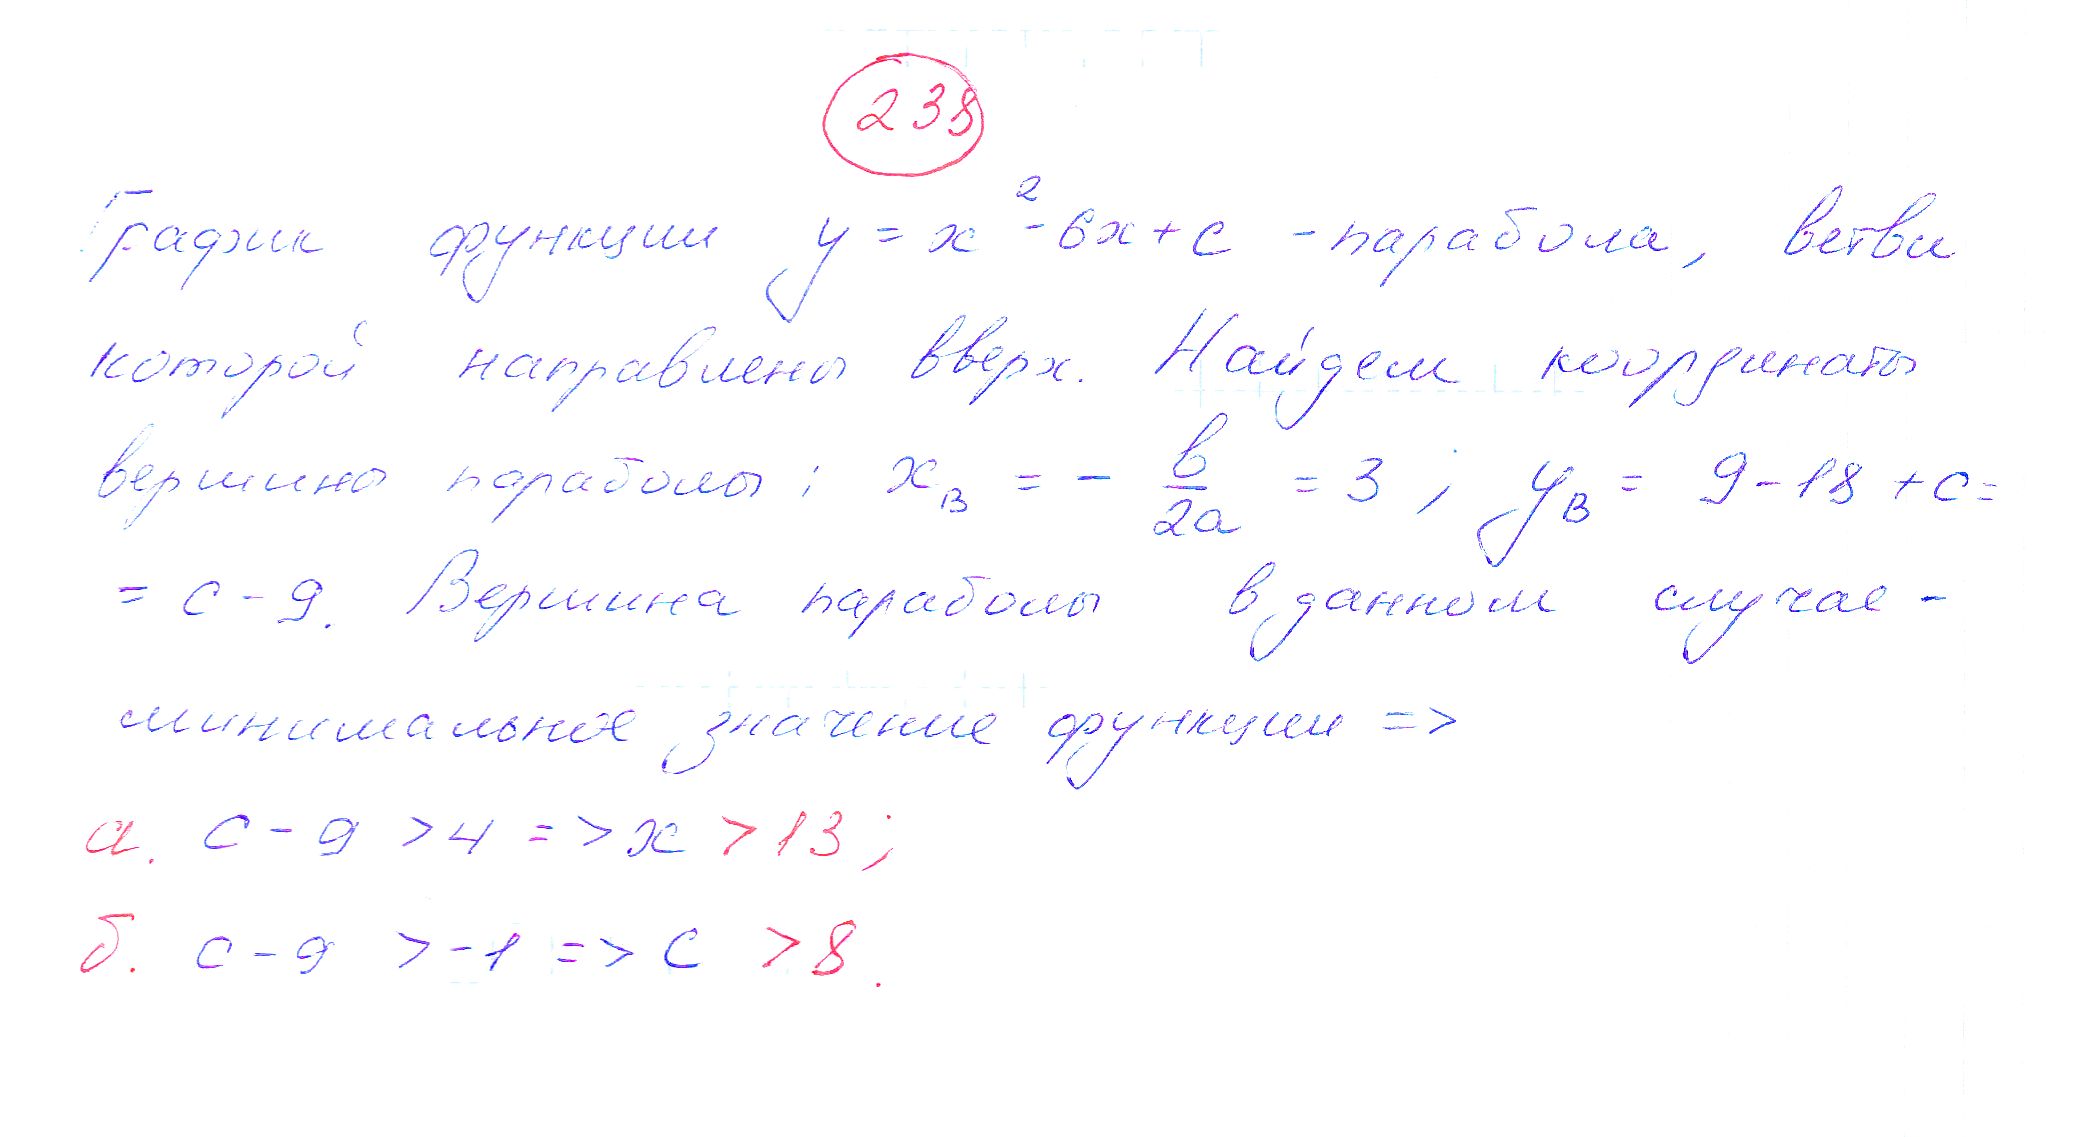 238
График функции y = x² - 6x + c - парабола, ветви
которой направлены вверх. Найдем координаты
вершины параболы: x_В = - b/2a = 3; y_В = 9 - 18 + c =
= c - 9. Вершина параболы в данном случае -
минимальное значение функции =>
а. c - 9 > 4 => x > 13;
б. c - 9 > -1 => c > 8.